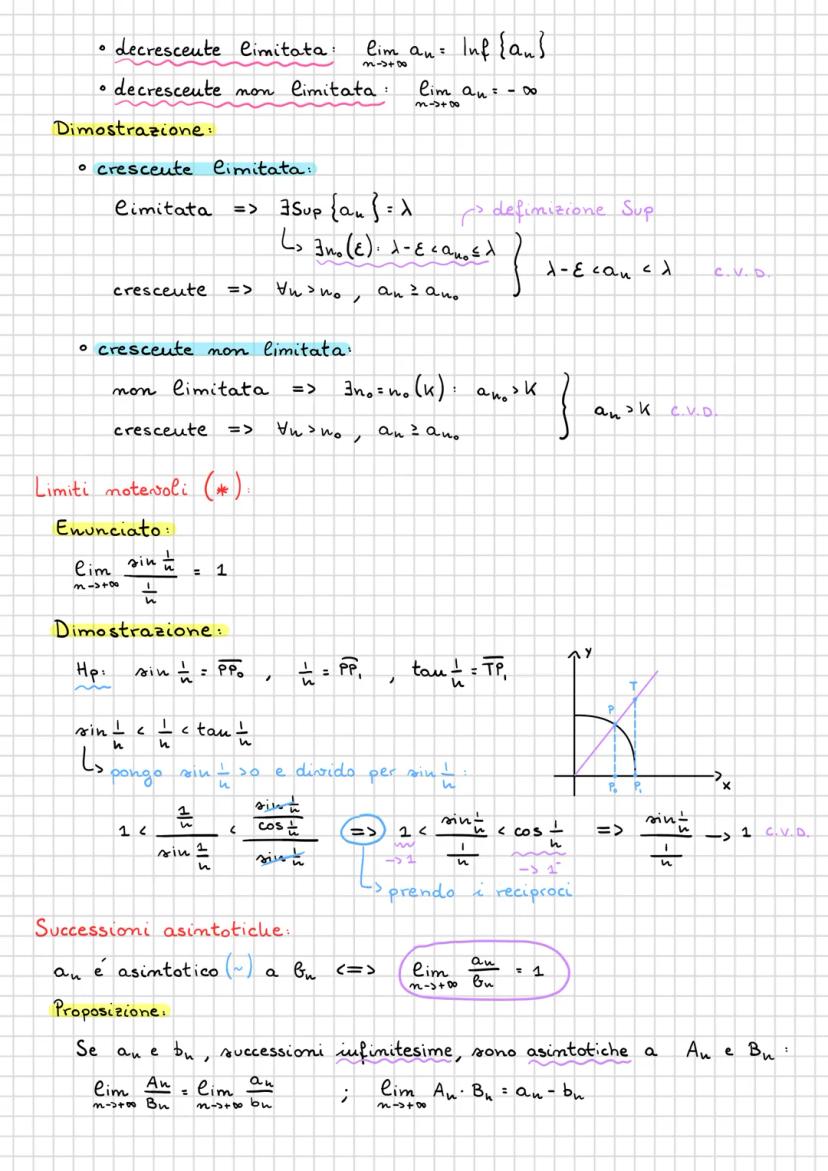 • decrescente limitata: lim n->+∞ an = Inf {an}
• decrescente non limitata: lim n->+∞ an = - ∞
Dimostrazione:
• crescente limitata:
limitata => ∃Sup {an} = λ → definizione Sup
↳ ∃n₀(ε): λ-ε < an₀ ≤ λ } λ-ε < an < λ C.V.D.
crescente => ∀n > n₀ , an ≥ an₀
• crescente non limitata:
non limitata => ∃n₀ = n₀(K) : an₀ > K } an > K C.V.D.
crescente => ∀n > n₀ , an ≥ an₀
Limiti notevoli (*):
Enunciato:
lim n->+∞ (sin 1/n)/(1/n) = 1
Dimostrazione:
Hp: sin 1/n = PP₀ , 1/n = PP₁ , tan 1/n = TP₁
y
T
P
P₀ P₁ x
sin 1/n < 1/n < tan 1/n
↳ pongo sin 1/n > 0 e divido per sin 1/n :
1 < (1/n)/(sin 1/n) < ((sin 1/n)/(cos 1/n))/(sin 1/n) => 1 < (sin 1/n)/(1/n) < cos 1/n => (sin 1/n)/(1/n) -> 1 C.V.D.
->1 ->1⁻
↳ prendo i reciproci
Successioni asintotiche:
an é asintotico (~) a bn <=> lim n->+∞ an/bn = 1
Proposizione:
Se an e bn, successioni infinitesime, sono asintotiche a An e Bn :
lim n->+∞ An/Bn = lim n->+∞ an/bn ; lim n->+∞ An · Bn = an - bn